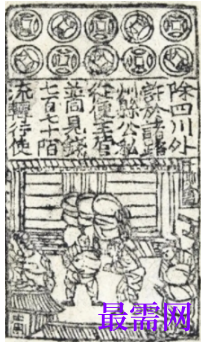 除四川外
許於諸路
州縣公私
從便主管
並同見錢
七百七十陌
流轉行使
最需网